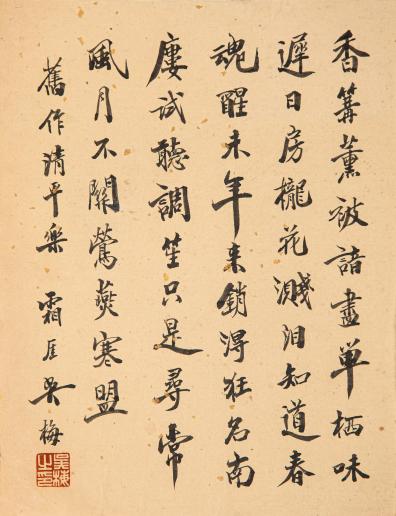 香篝薰被諳盡单栖味
遲日房櫳花濺泪知道春
魂醒未年来銷得狂名南
廔試聽調笙只是尋常
風月不關鶯燕寒盟
舊作清平樂 霜厓吳梅
吳梅之印